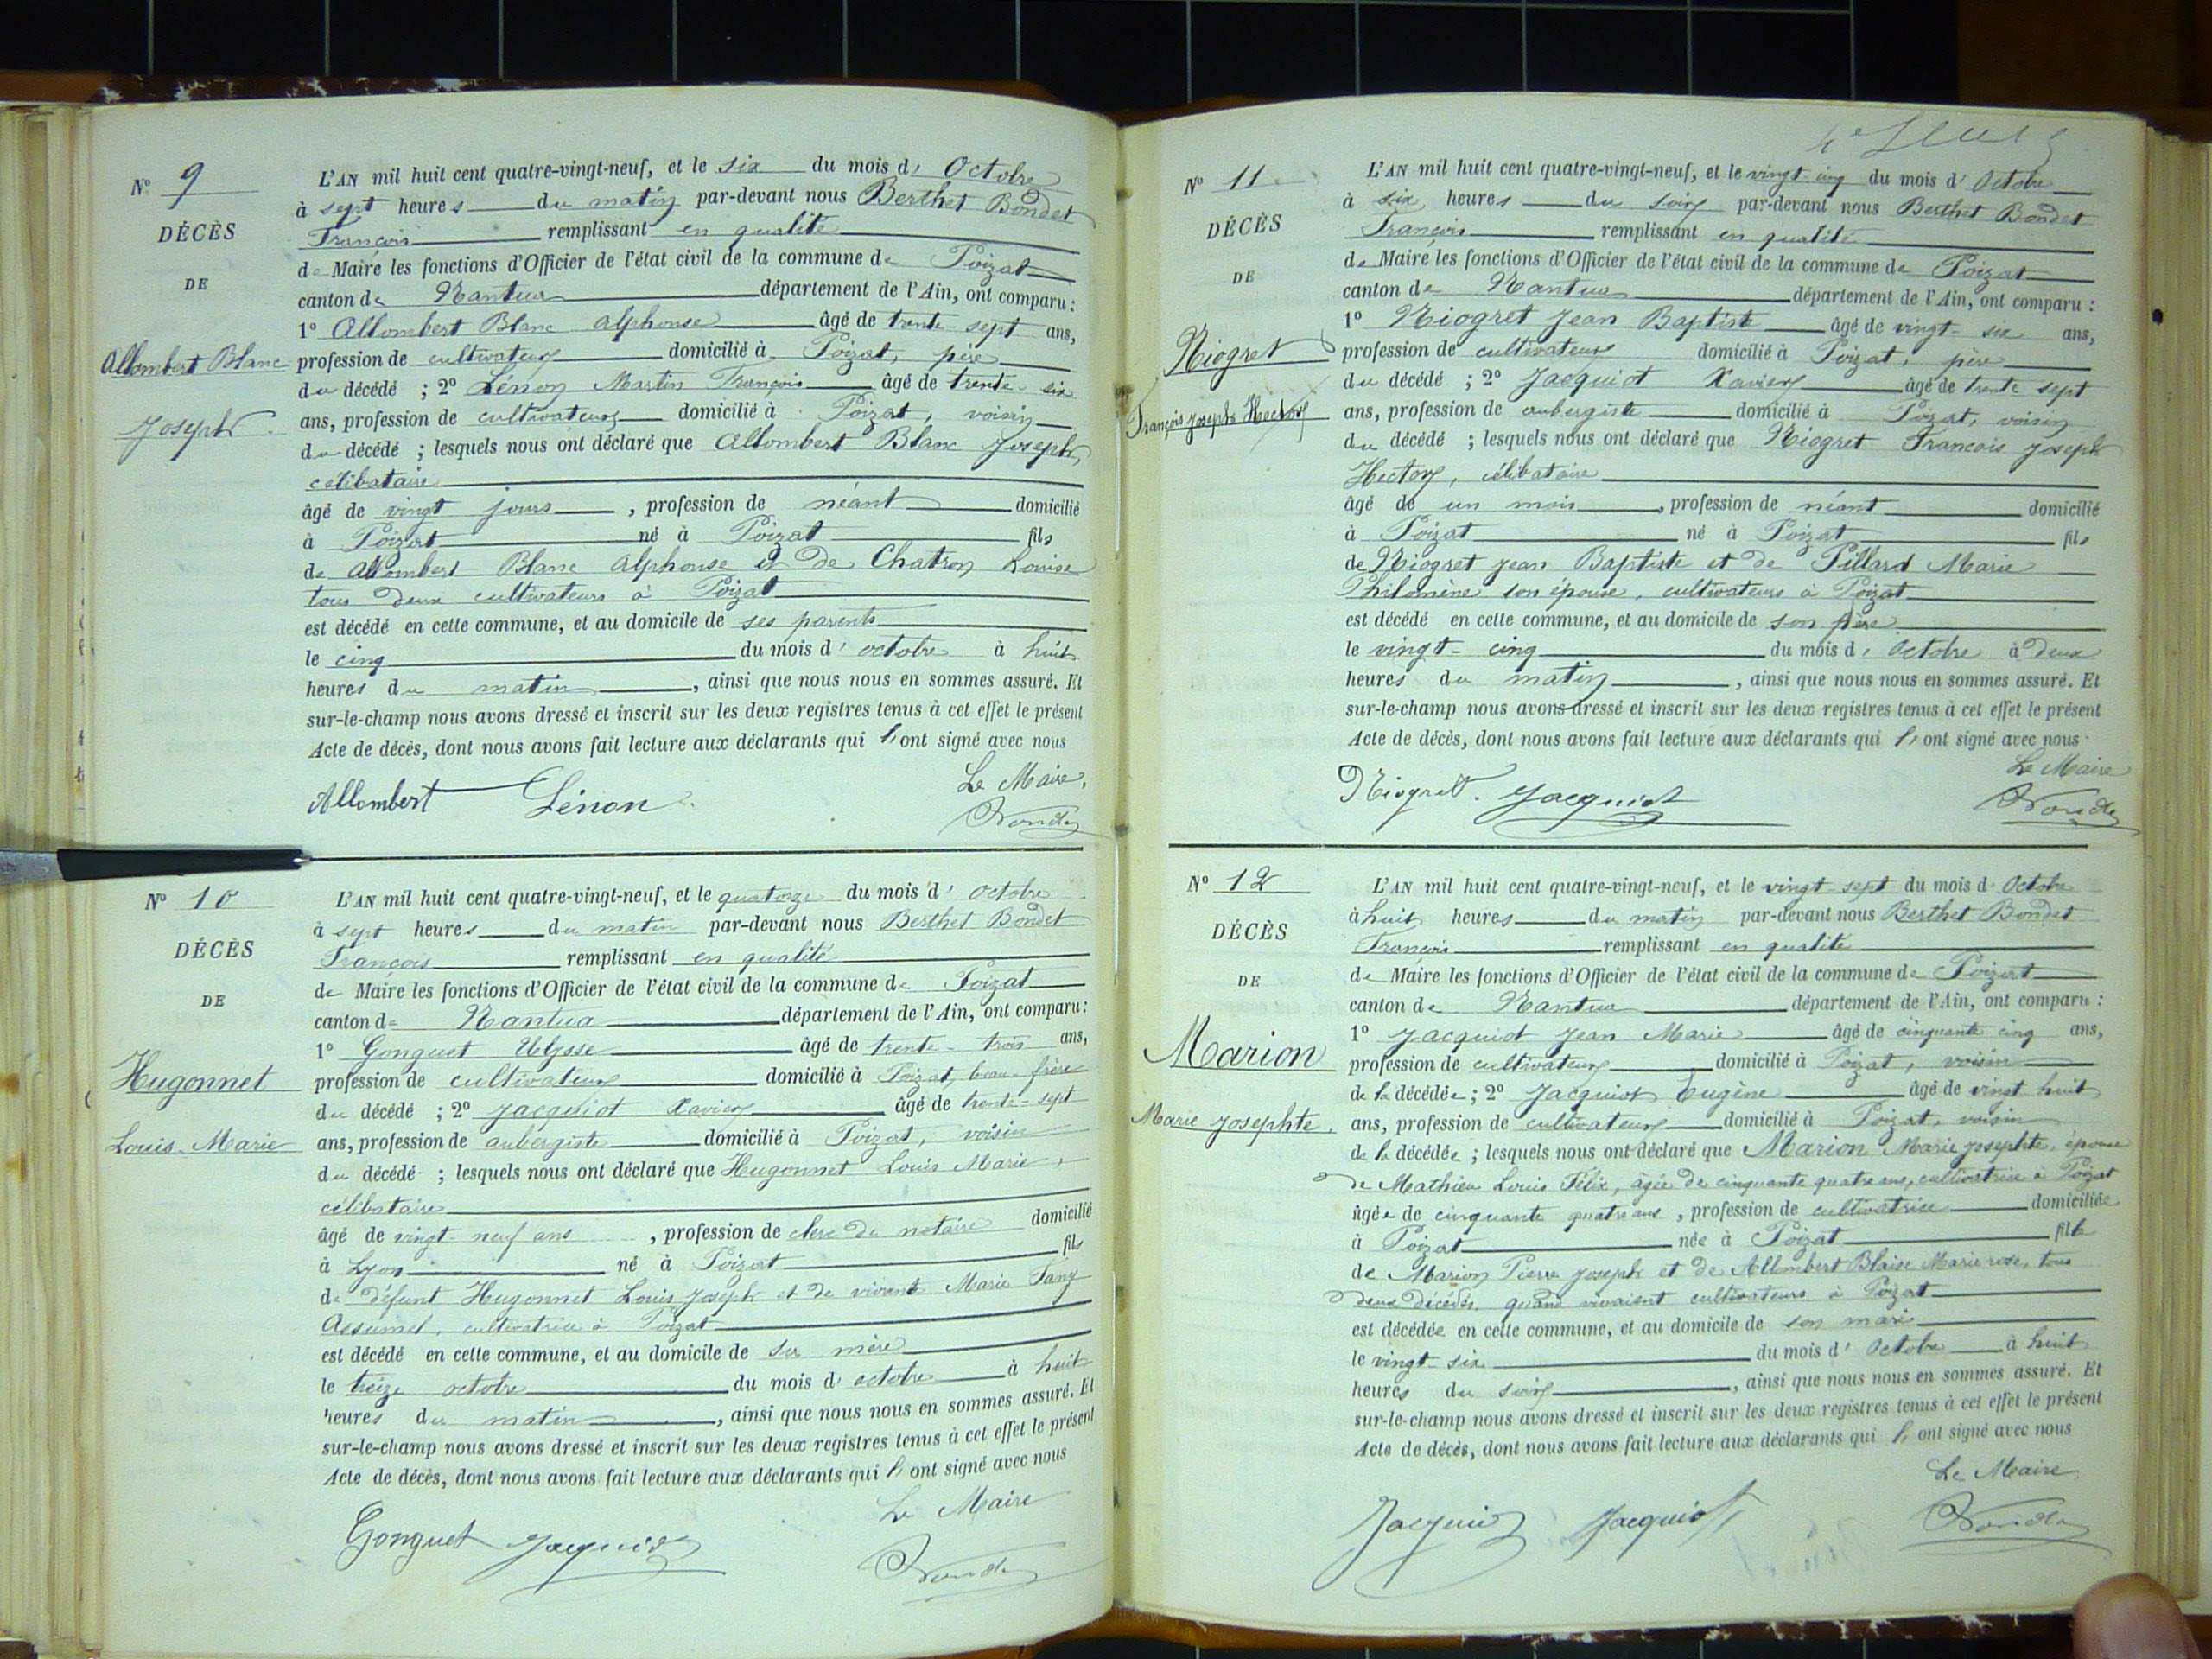 Nº 9
DÉCÈS
DE
Allombert Blanc
Joseph
L'AN mil huit cent quatre-vingt-neuf, et le six du mois d' Octobre
à sept heures du matin par-devant nous Berthet Bondet
François remplissant en qualité
de Maire les fonctions d'Officier de l'état civil de la commune de Poizat
canton de Nantua département de l'Ain, ont comparu :
1º Allombert Blanc Alphonse âgé de trente sept ans,
profession de cultivateur domicilié à Poizat, père
du décédé ; 2º Lénon Martin François âgé de trente-six
ans, profession de cultivateur domicilié à Poizat, voisin
du décédé ; lesquels nous ont déclaré que Allombert Blanc Joseph,
célibataire
âgé de vingt jours , profession de néant domicilié
à Poizat né à Poizat fils
de Allombert Blanc Alphonse et de Chatron Louise
tous deux cultivateurs à Poizat
est décédé en cette commune, et au domicile de ses parents
le cinq du mois d' octobre à huit
heures du matin , ainsi que nous nous en sommes assuré. Et
sur-le-champ nous avons dressé et inscrit sur les deux registres tenus à cet effet le présent
Acte de décès, dont nous avons fait lecture aux déclarants qui l'ont signé avec nous
Le Maire,
Allombert Lénon
Nº 10
DÉCÈS
DE
Hugonnet
Louis Marie
L'AN mil huit cent quatre-vingt-neuf, et le quatorze du mois d' octobre
à sept heures du matin par-devant nous Berthet Bondet
François remplissant en qualité
de Maire les fonctions d'Officier de l'état civil de la commune de Poizat
canton de Nantua département de l'Ain, ont comparu :
1º Gonguet Ulysse âgé de trente-trois ans,
profession de cultivateur domicilié à Poizat, beau-frère
du décédé ; 2º Jacquiot Xavier âgé de trente-sept
ans, profession de aubergiste domicilié à Poizat, voisin
du décédé ; lesquels nous ont déclaré que Hugonnet Louis Marie,
célibataire
âgé de vingt-neuf ans , profession de clerc de notaire domicilié
à Lyon né à Poizat fils
de défunt Hugonnet Louis Joseph et de vivante Marie Fany
cultivatrice à Poizat
est décédé en cette commune, et au domicile de sa mère
le treize octobre du mois d' octobre à huit
heures du matin , ainsi que nous nous en sommes assuré. Et
sur-le-champ nous avons dressé et inscrit sur les deux registres tenus à cet effet le présent
Acte de décès, dont nous avons fait lecture aux déclarants qui l'ont signé avec nous
Le Maire
Gonguet Jacquiot
Nº 11
DÉCÈS
DE
Niogret
François Joseph Hector
L'AN mil huit cent quatre-vingt-neuf, et le vingt-cinq du mois d' Octobre
à six heures du soir par-devant nous Berthet Bondet
François remplissant en qualité
de Maire les fonctions d'Officier de l'état civil de la commune de Poizat
canton de Nantua département de l'Ain, ont comparu :
1º Niogret Jean Baptiste âgé de vingt-six ans,
profession de cultivateur domicilié à Poizat, père
du décédé ; 2º Jacquiot Xavier âgé de trente sept
ans, profession de aubergiste domicilié à Poizat, voisin
du décédé ; lesquels nous ont déclaré que Niogret François Joseph
Hector, célibataire
âgé de un mois , profession de néant domicilié
à Poizat né à Poizat fils
de Niogret Jean Baptiste et de Pillard Marie
Philomène son épouse, cultivateurs à Poizat
est décédé en cette commune, et au domicile de son père
le vingt-cinq du mois d' Octobre à deux
heures du matin , ainsi que nous nous en sommes assuré. Et
sur-le-champ nous avons dressé et inscrit sur les deux registres tenus à cet effet le présent
Acte de décès, dont nous avons fait lecture aux déclarants qui l'ont signé avec nous
Le Maire
Niogret. Jacquiot
Nº 12
DÉCÈS
DE
Marion
Marie Josephte.
L'AN mil huit cent quatre-vingt-neuf, et le vingt-sept du mois d' Octobre
à huit heures du matin par-devant nous Berthet Bondet
François remplissant en qualité
de Maire les fonctions d'Officier de l'état civil de la commune de Poizat
canton de Nantua département de l'Ain, ont comparu :
1º Jacquiot Jean Marie âgé de cinquante cinq ans,
profession de cultivateur domicilié à Poizat, voisin
de la décédée ; 2º Jacquiot Eugène âgé de vingt huit
ans, profession de cultivateur domicilié à Poizat, voisin
de la décédée ; lesquels nous ont déclaré que Marion Marie Josephte, épouse
de Mathieu Louis Félix, âgée de cinquante quatre ans, cultivatrice à Poizat
âgée de cinquante quatre ans , profession de cultivatrice domiciliée
à Poizat née à Poizat fille
de Marion Pierre Joseph et de Allombert Blaise Marie rose, tous
deux décédés, quand vivaient cultivateurs à Poizat
est décédée en cette commune, et au domicile de son mari
le vingt-six du mois d' Octobre à huit
heures du soir , ainsi que nous nous en sommes assuré. Et
sur-le-champ nous avons dressé et inscrit sur les deux registres tenus à cet effet le présent
Acte de décès, dont nous avons fait lecture aux déclarants qui l'ont signé avec nous
Le Maire
Jacquiot Jacquiot